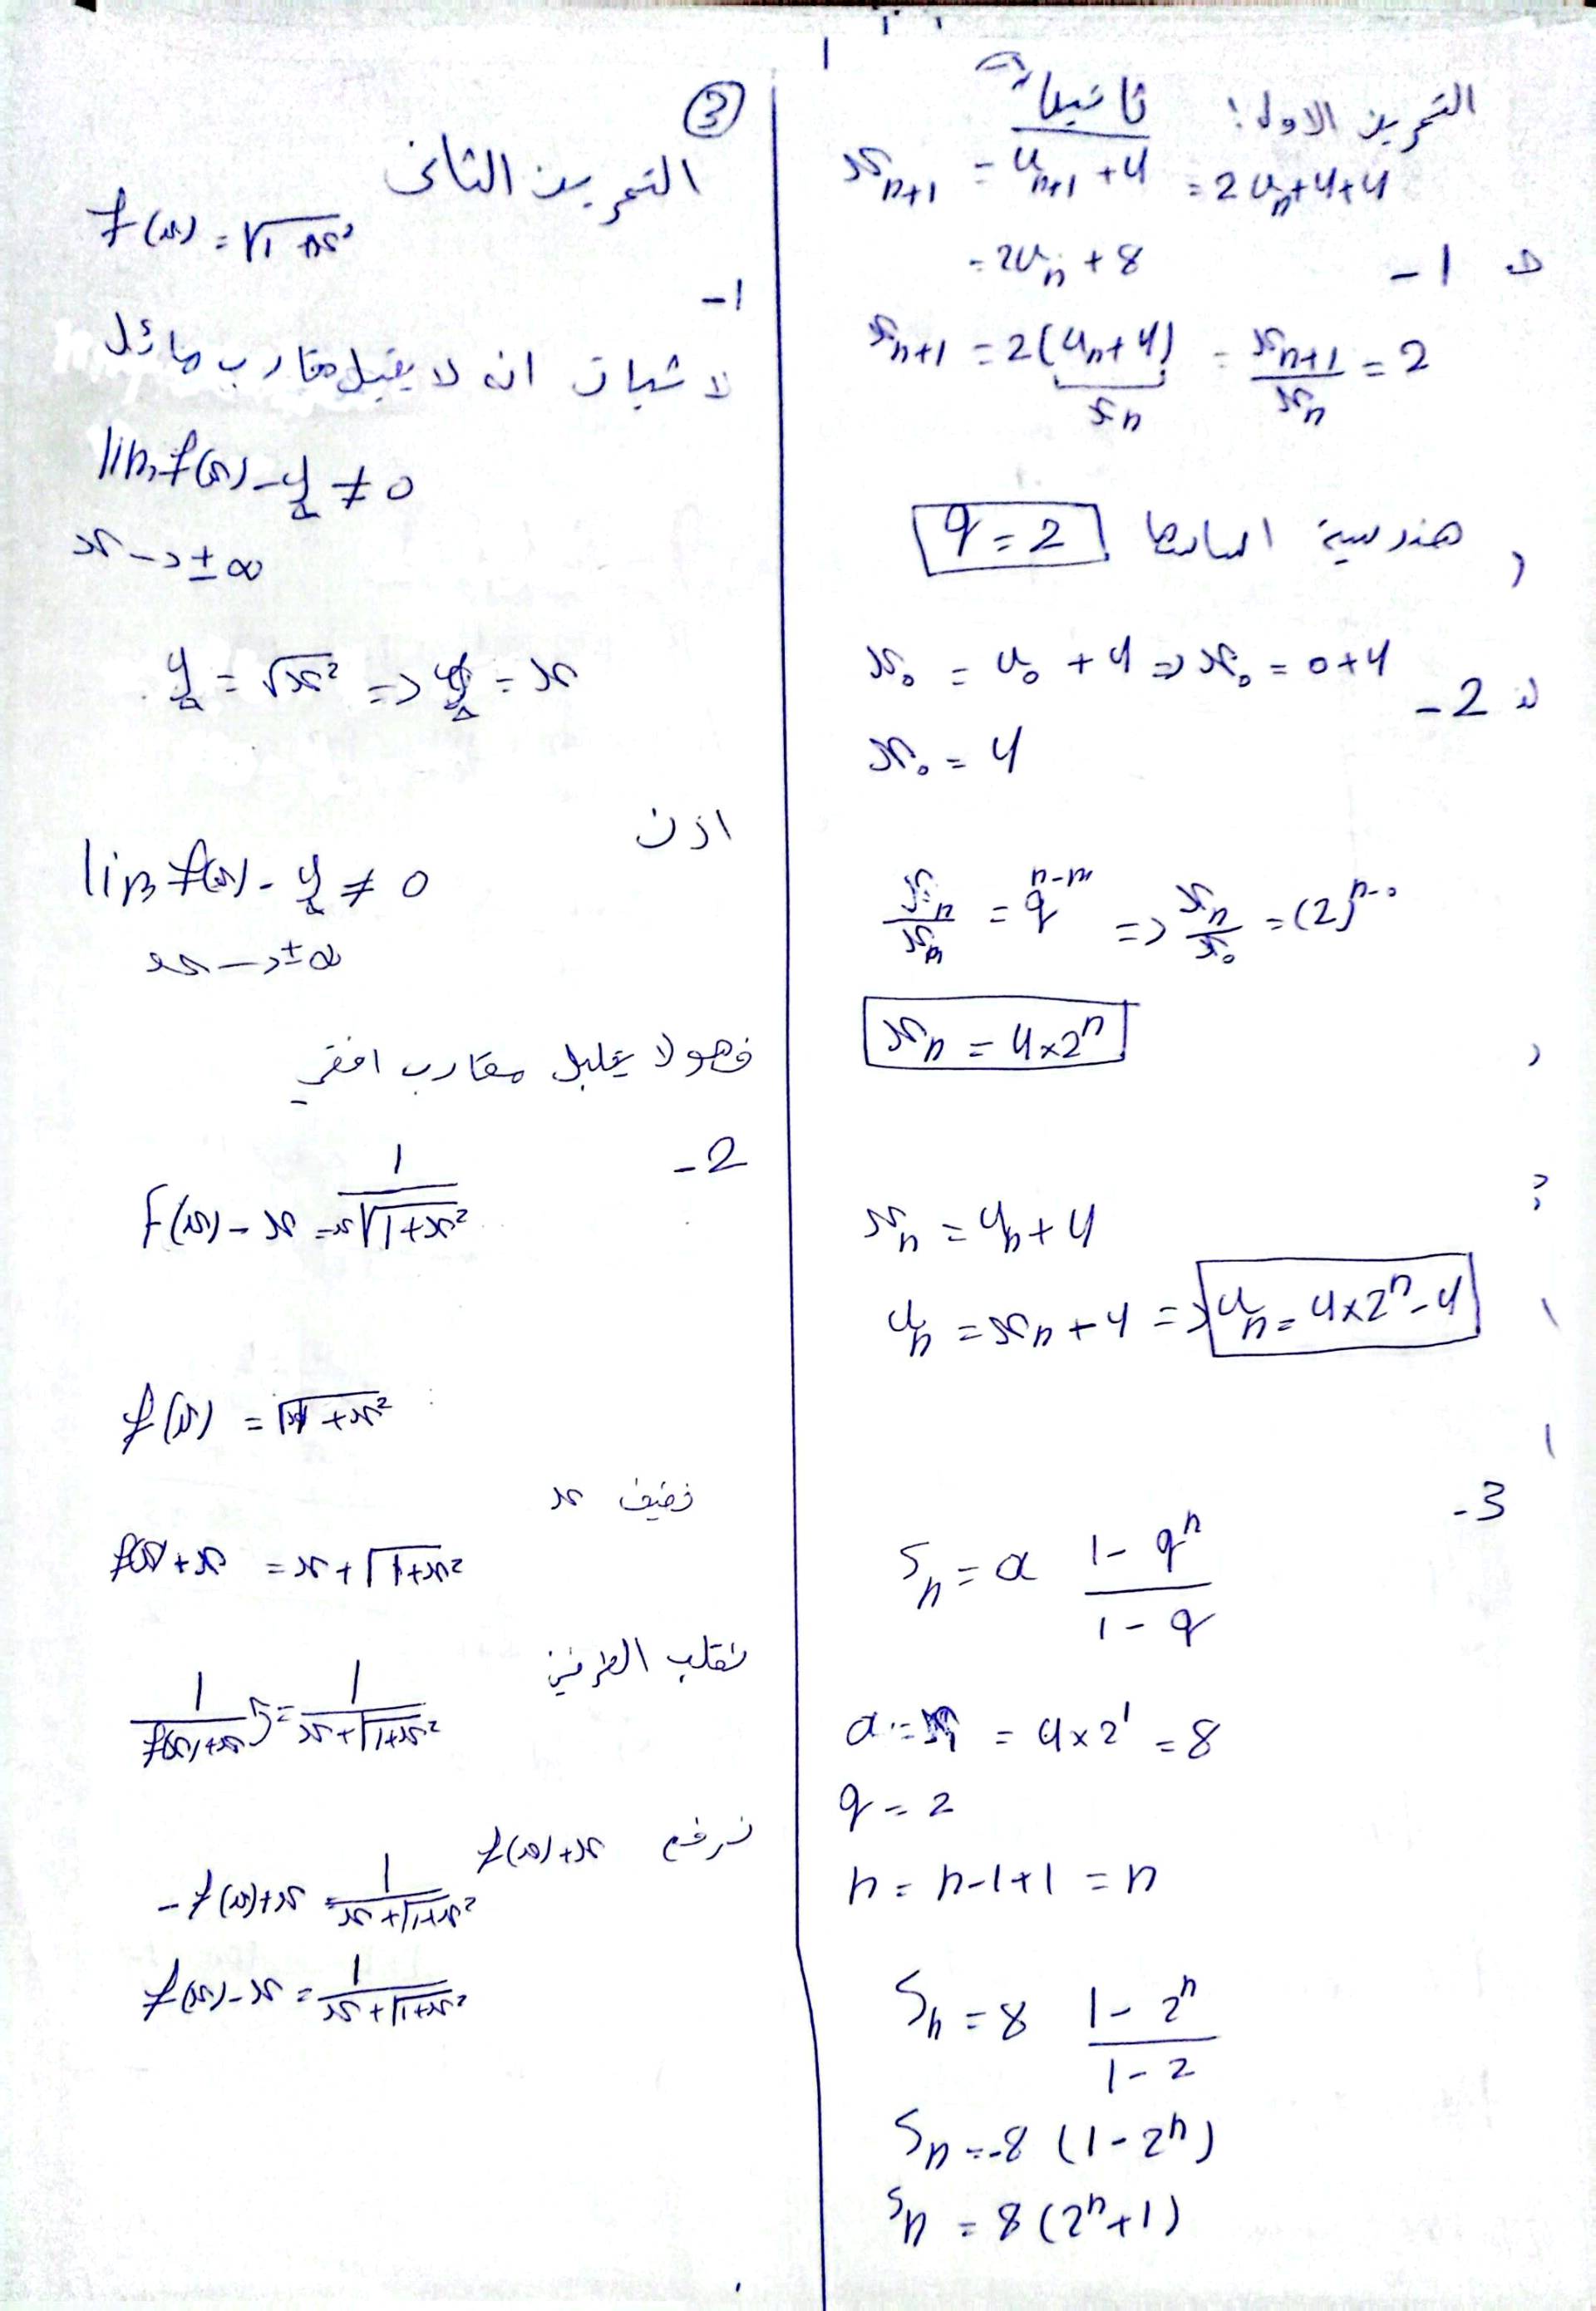 التمرين الاول: ثانيا
x_{n+1} = u_{n+1} + 4 = 2u_n + 4 + 4
1 - = 2u_n + 8
x_{n+1} = 2(u_n + 4) = x_{n+1}/x_n = 2
x_n
هندسية اساسها q = 2
2 - x_0 = u_0 + 4 => x_0 = 0 + 4
x_0 = 4
x_n/x_m = q^{n-m} => x_n/x_0 = (2)^{n-0}
x_n = 4×2^n
x_n = u_n + 4
u_n = x_n + 4 => u_n = 4×2^n - 4
3 -
S_n = a (1 - q^n)/(1 - q)
a = x_1 = 4×2^1 = 8
q = 2
n = n - 1 + 1 = n
S_n = 8 (1 - 2^n)/(1 - 2)
S_n = -8 (1 - 2^n)
S_n = 8 (2^n + 1)
③
التمرين الثاني
f(x) = √(1 + x²)
1 -
لاثبات انه لا يقبل مقارب مائل
lim f(x) - y_Δ ≠ 0
x -> ±∞
y_Δ = √x² => y_Δ = x
اذن
lim f(x) - y_Δ ≠ 0
x -> ±∞
فهو لا يقبل مقارب افقي
2 -
f(x) - x = 1/(x√(1+x²))
f(x) = √(1 + x²)
نضيف x
f(x) + x = x + √(1+x²)
نقلب الطرفين
1/(f(x)+x) = 1/(x+√(1+x²))
نرفع f(x)+x
-f(x)+x = 1/(x+√(1+x²))
f(x) - x = 1/(x+√(1+x²))